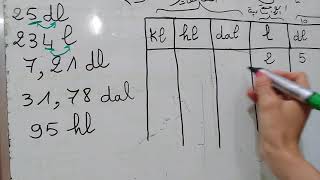 25 dl
234 l
7,21 dl
31,78 dal
95 hl
kl hl dal l dl
2 5